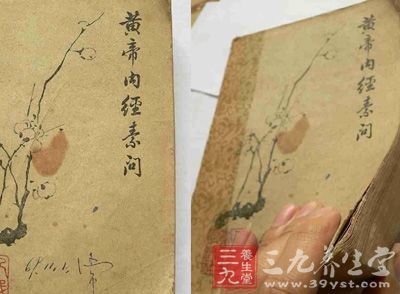 黄帝内經素問
黄帝内經素問
三九
養生堂
三九养生堂
www.39yst.com